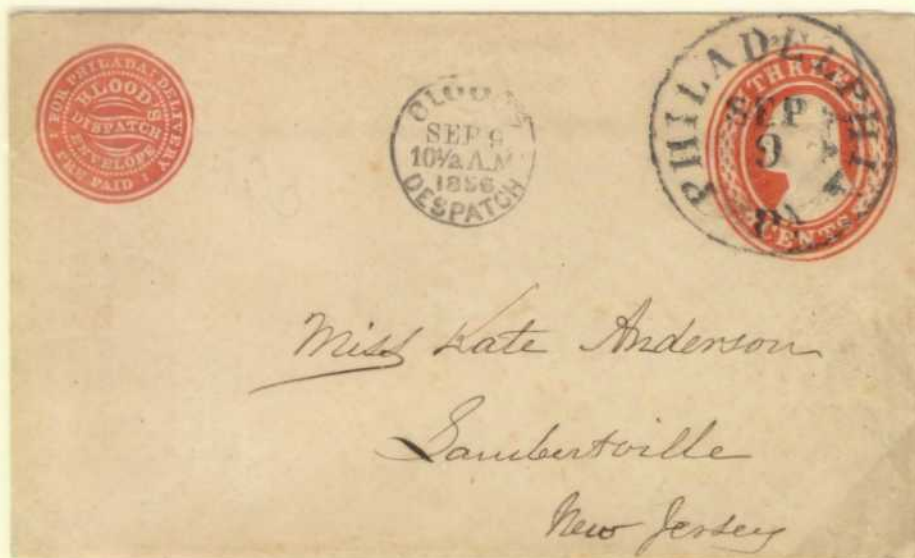 FOR PHILADA: DELIVERY
BLOOD'S
DISPATCH
ENVELOPE
PRE PAID
SEP 9
10½ A.M
1856
DESPATCH
PHILADELPHIA
SEP
9
THREE
CENTS
Miss Kate Anderson
Lambertville
New Jersey